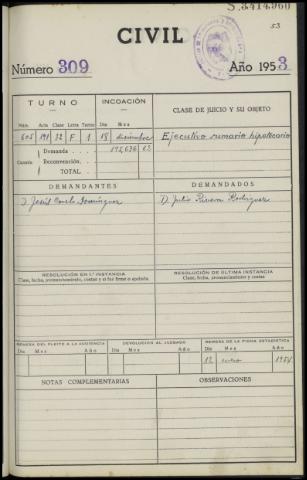 S.3414960
53
CIVIL
Número 309 Año 1953
TURNO INCOACIÓN CLASE DE JUICIO Y SU OBJETO
Núm. Año Clase Letra Turno Día Mes
605 191 12 F 1 18 diciembre Ejecutivo sumario hipotecario
Cuantía Demanda 192,636 63
Reconvención
TOTAL
DEMANDANTES DEMANDADOS
D. José Domínguez D. Julio Rivera Rodríguez
RESOLUCIÓN EN 1.ª INSTANCIA RESOLUCIÓN DE ÚLTIMA INSTANCIA
Clase, fecha, pronunciamiento, costas y si fué firme o apelada Clase, fecha, pronunciamiento y costas
REMESA DEL PLEITO A LA AUDIENCIA DEVOLUCIÓN AL JUZGADO REMESA DE LA FICHA ESTADÍSTICA
Día Mes Año Día Mes Año Día Mes Año
12 enero 1954
NOTAS COMPLEMENTARIAS OBSERVACIONES